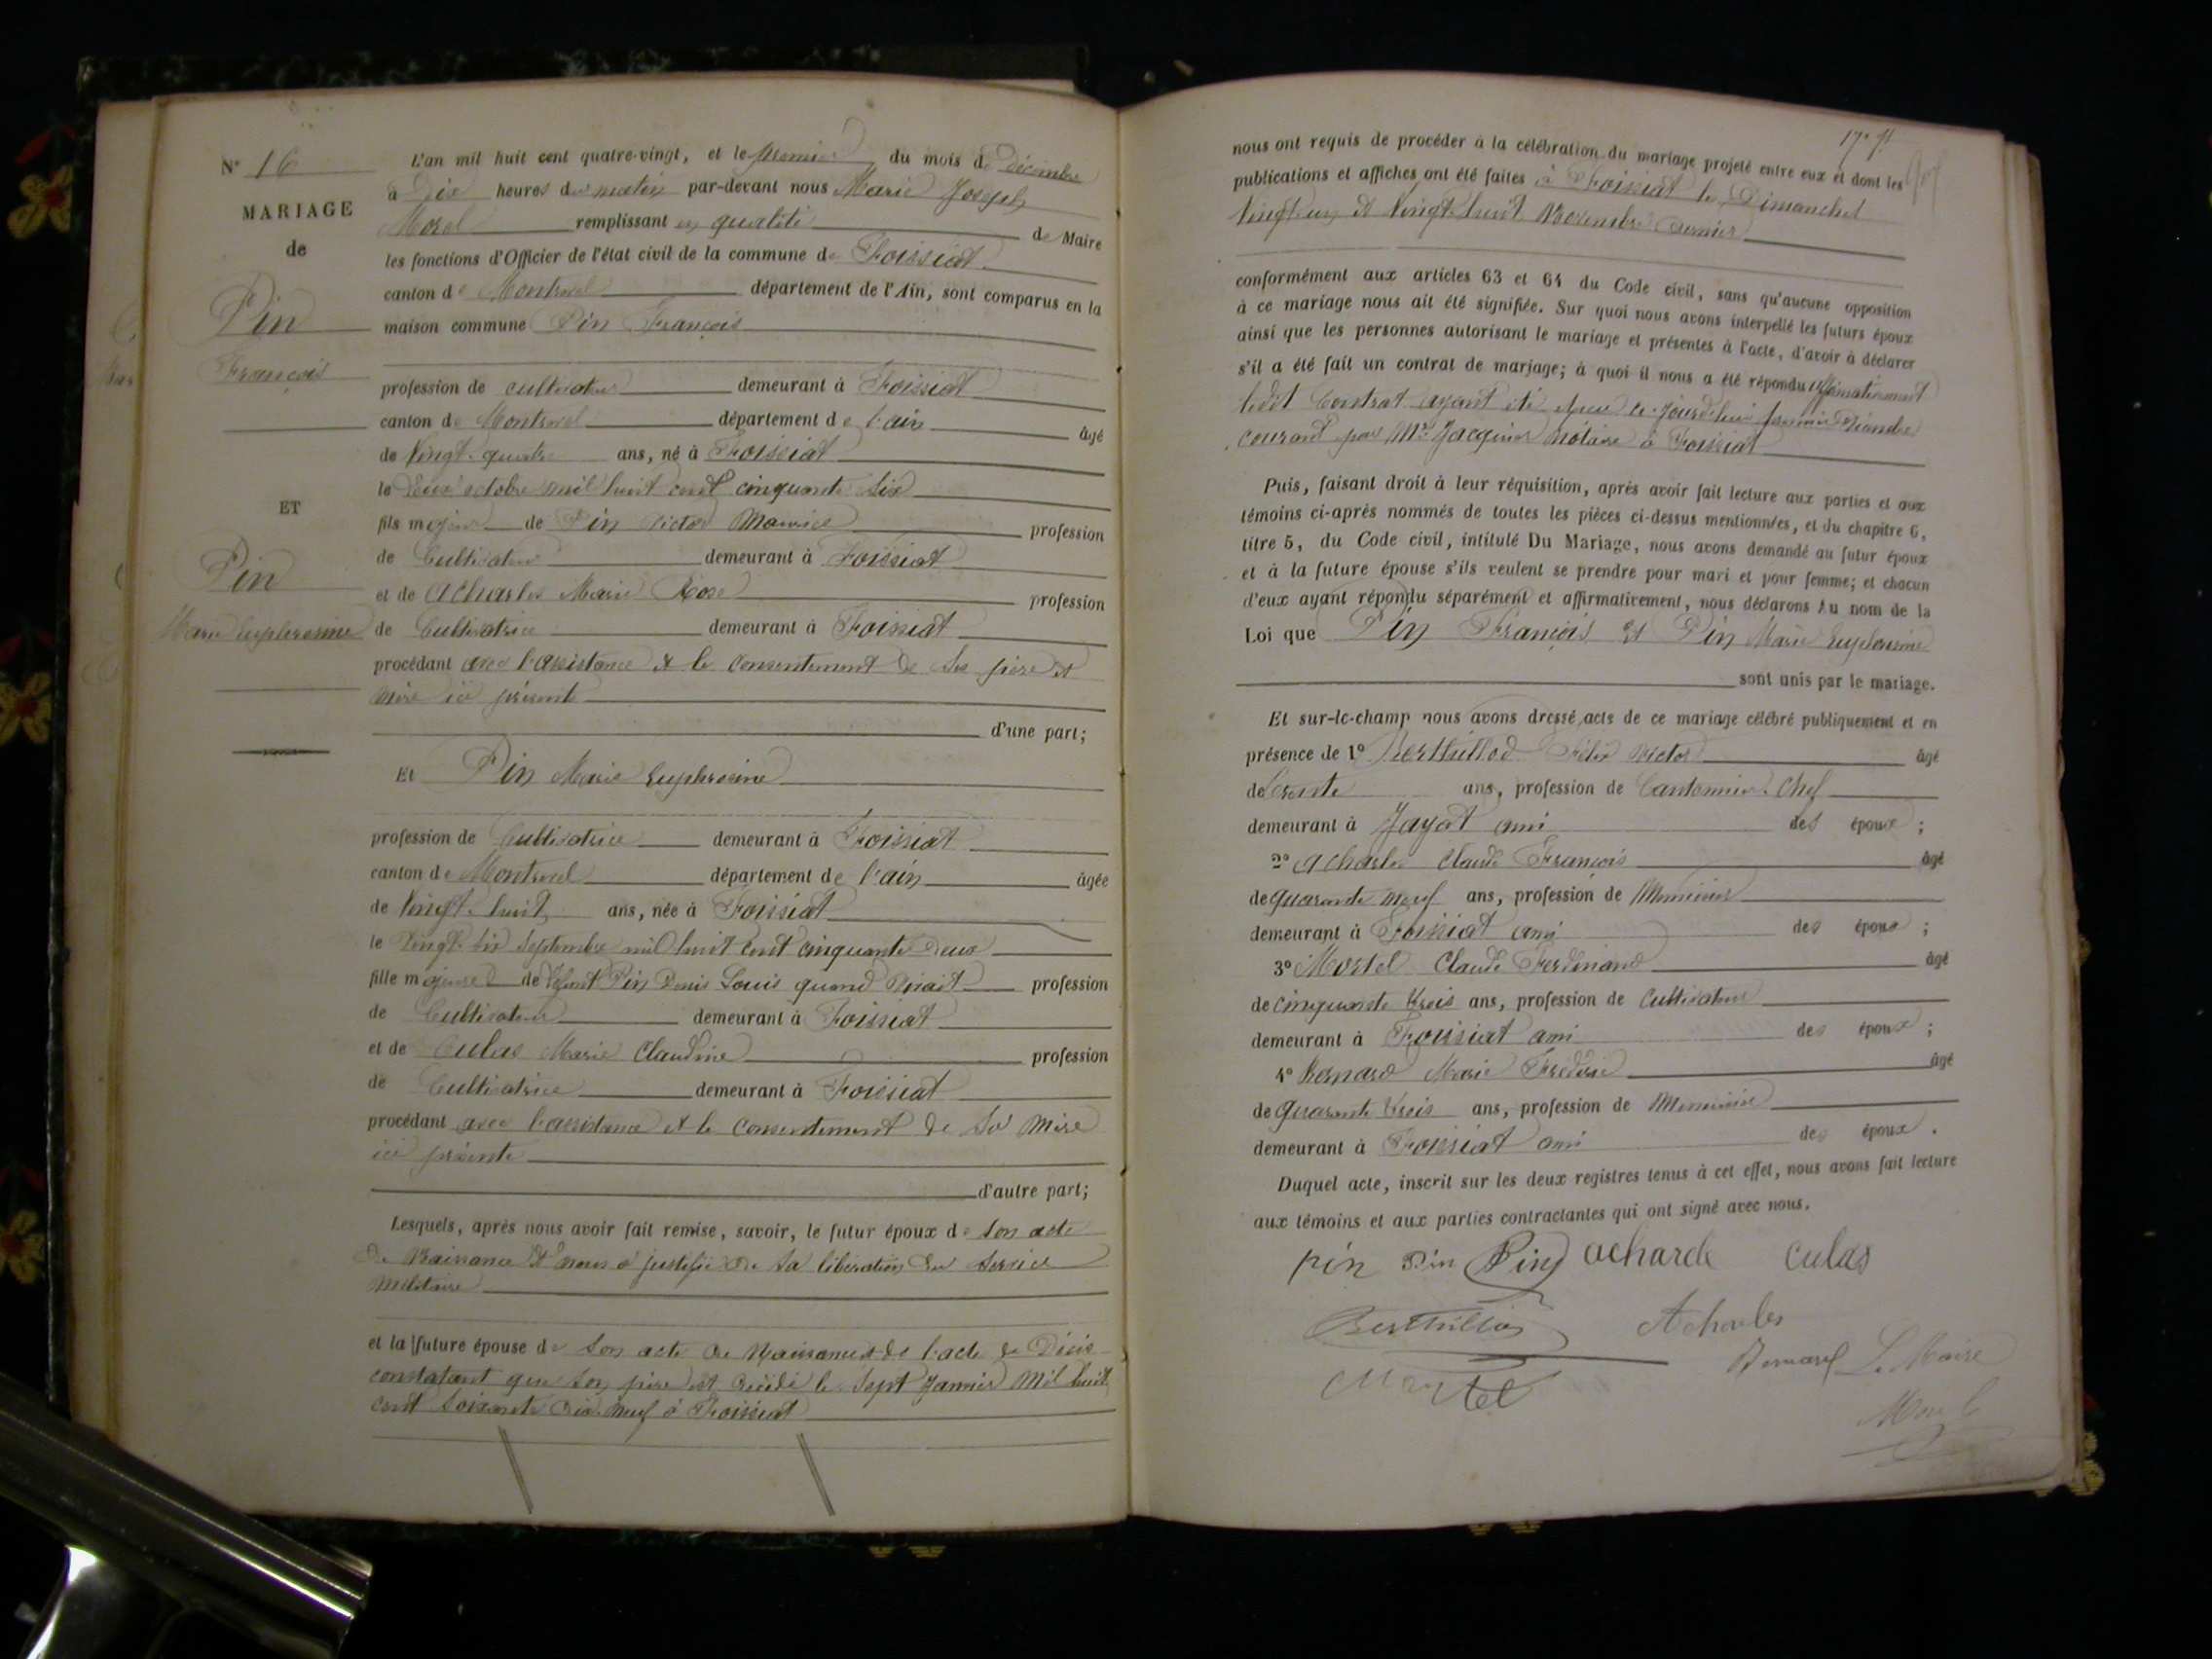 N° 16
MARIAGE
de
Pin
François
ET
Pin
Marie Euphrosine
L'an mil huit cent quatre-vingt, et le premier du mois de Décembre
à Dix heures du matin par-devant nous Marie Joseph
Morel remplissant en qualité de Maire
les fonctions d'Officier de l'état civil de la commune de Foissiat
canton de Montrevel département de l'Ain, sont comparus en la
maison commune Pin François
profession de cultivateur demeurant à Foissiat
canton de Montrevel département de l'ain âgé
de Vingt-quatre ans, né à Foissiat
le Deux octobre mil huit cent cinquante six
fils majeur de Pin Victor Maurice profession
de Cultivateur demeurant à Foissiat
et de Acharles Marie Rose profession
de Cultivatrice demeurant à Foissiat
procédant avec l'assistance et le consentement de Ses père et
mère ici présents
d'une part;
Et Pin Marie Euphrosine
profession de Cultivatrice demeurant à Foissiat
canton de Montrevel département de l'ain âgée
de Vingt-huit ans, née à Foissiat
le Vingt-six Septembre mil huit cent cinquante Deux
fille majeure de Défunt Pin Denis Louis quand vivait profession
de Cultivateur demeurant à Foissiat
et de Culas Marie Claudine profession
de Cultivatrice demeurant à Foissiat
procédant avec l'assistance et le consentement de Sa Mère
ici présente
d'autre part;
Lesquels, après nous avoir fait remise, savoir, le futur époux de son acte
De Naissance et nous a justifié de Sa libération du Service
Militaire
et la future épouse de son acte de Naissance et de l'acte de Décès
constatant que son père est Décédé le Sept Janvier Mil huit
cent Soixante Dix-neuf à Foissiat
17e f!
nous ont requis de procéder à la célébration du mariage projeté entre eux et dont les
publications et affiches ont été faites à Foissiat les Dimanches
Vingt-un et Vingt-huit Novembre dernier
conformément aux articles 63 et 64 du Code civil, sans qu'aucune opposition
à ce mariage nous ait été signifiée. Sur quoi nous avons interpellé les futurs époux
ainsi que les personnes autorisant le mariage et présentes à l'acte, d'avoir à déclarer
s'il a été fait un contrat de mariage; à quoi il nous a été répondu affirmativement
ledit Contrat ayant été reçu ce-jourd'hui premier Décembre
courant par Me Jacquier Notaire à Foissiat
Puis, faisant droit à leur réquisition, après avoir fait lecture aux parties et aux
témoins ci-après nommés de toutes les pièces ci-dessus mentionnées, et du chapitre 6,
titre 5, du Code civil, intitulé Du Mariage, nous avons demandé au futur époux
et à la future épouse s'ils veulent se prendre pour mari et pour femme; et chacun
d'eux ayant répondu séparément et affirmativement, nous déclarons au nom de la
Loi que Pin François et Pin Marie Euphrosine
sont unis par le mariage.
Et sur-le-champ nous avons dressé acte de ce mariage célébré publiquement et en
présence de 1° Berthillod Félix Victor âgé
de Trente ans, profession de Cantonnier-Chef
demeurant à Jayat ami des époux;
2° Acharles Claude François âgé
de quarante neuf ans, profession de Menuisier
demeurant à Foissiat ami des époux;
3° Mortel Claude Ferdinand âgé
de cinquante trois ans, profession de Cultivateur
demeurant à Foissiat ami des époux;
4° Bernard Marie Frédéric âgé
de quarante trois ans, profession de Menuisier
demeurant à Foissiat ami des époux.
Duquel acte, inscrit sur les deux registres tenus à cet effet, nous avons fait lecture
aux témoins et aux parties contractantes qui ont signé avec nous.
pin Pin Pin acharle Culas
Berthillod Acharles
Bernard Le Maire
Mortel
Morel